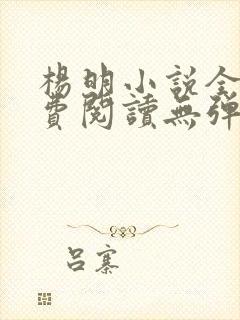 楊明小說全
費閱讀無彈
呂寨